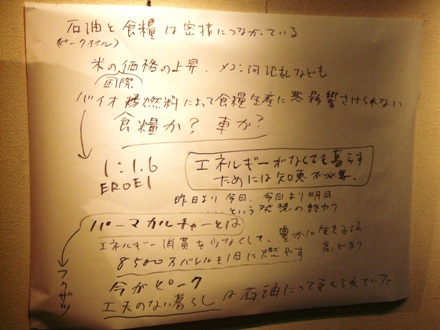 石油と食糧は密接につながっている
(ピークオイル)
米の価格の上昇、メコン河
国際
バイオ燃料によって食糧生産に悪影響さけられない
食糧か？ 車か？
1:1.6
EROEI
エネルギーがなくても暮らす
ためには知恵が必要。
昨日より今日、今日より明日
という発想の終わり
パーマカルチャーとは
エネルギー消費を少なくして、豊かに生きる
8500万バレルを1日に燃やす
今がピーク
工夫のない暮らしは石油によって支えられていた